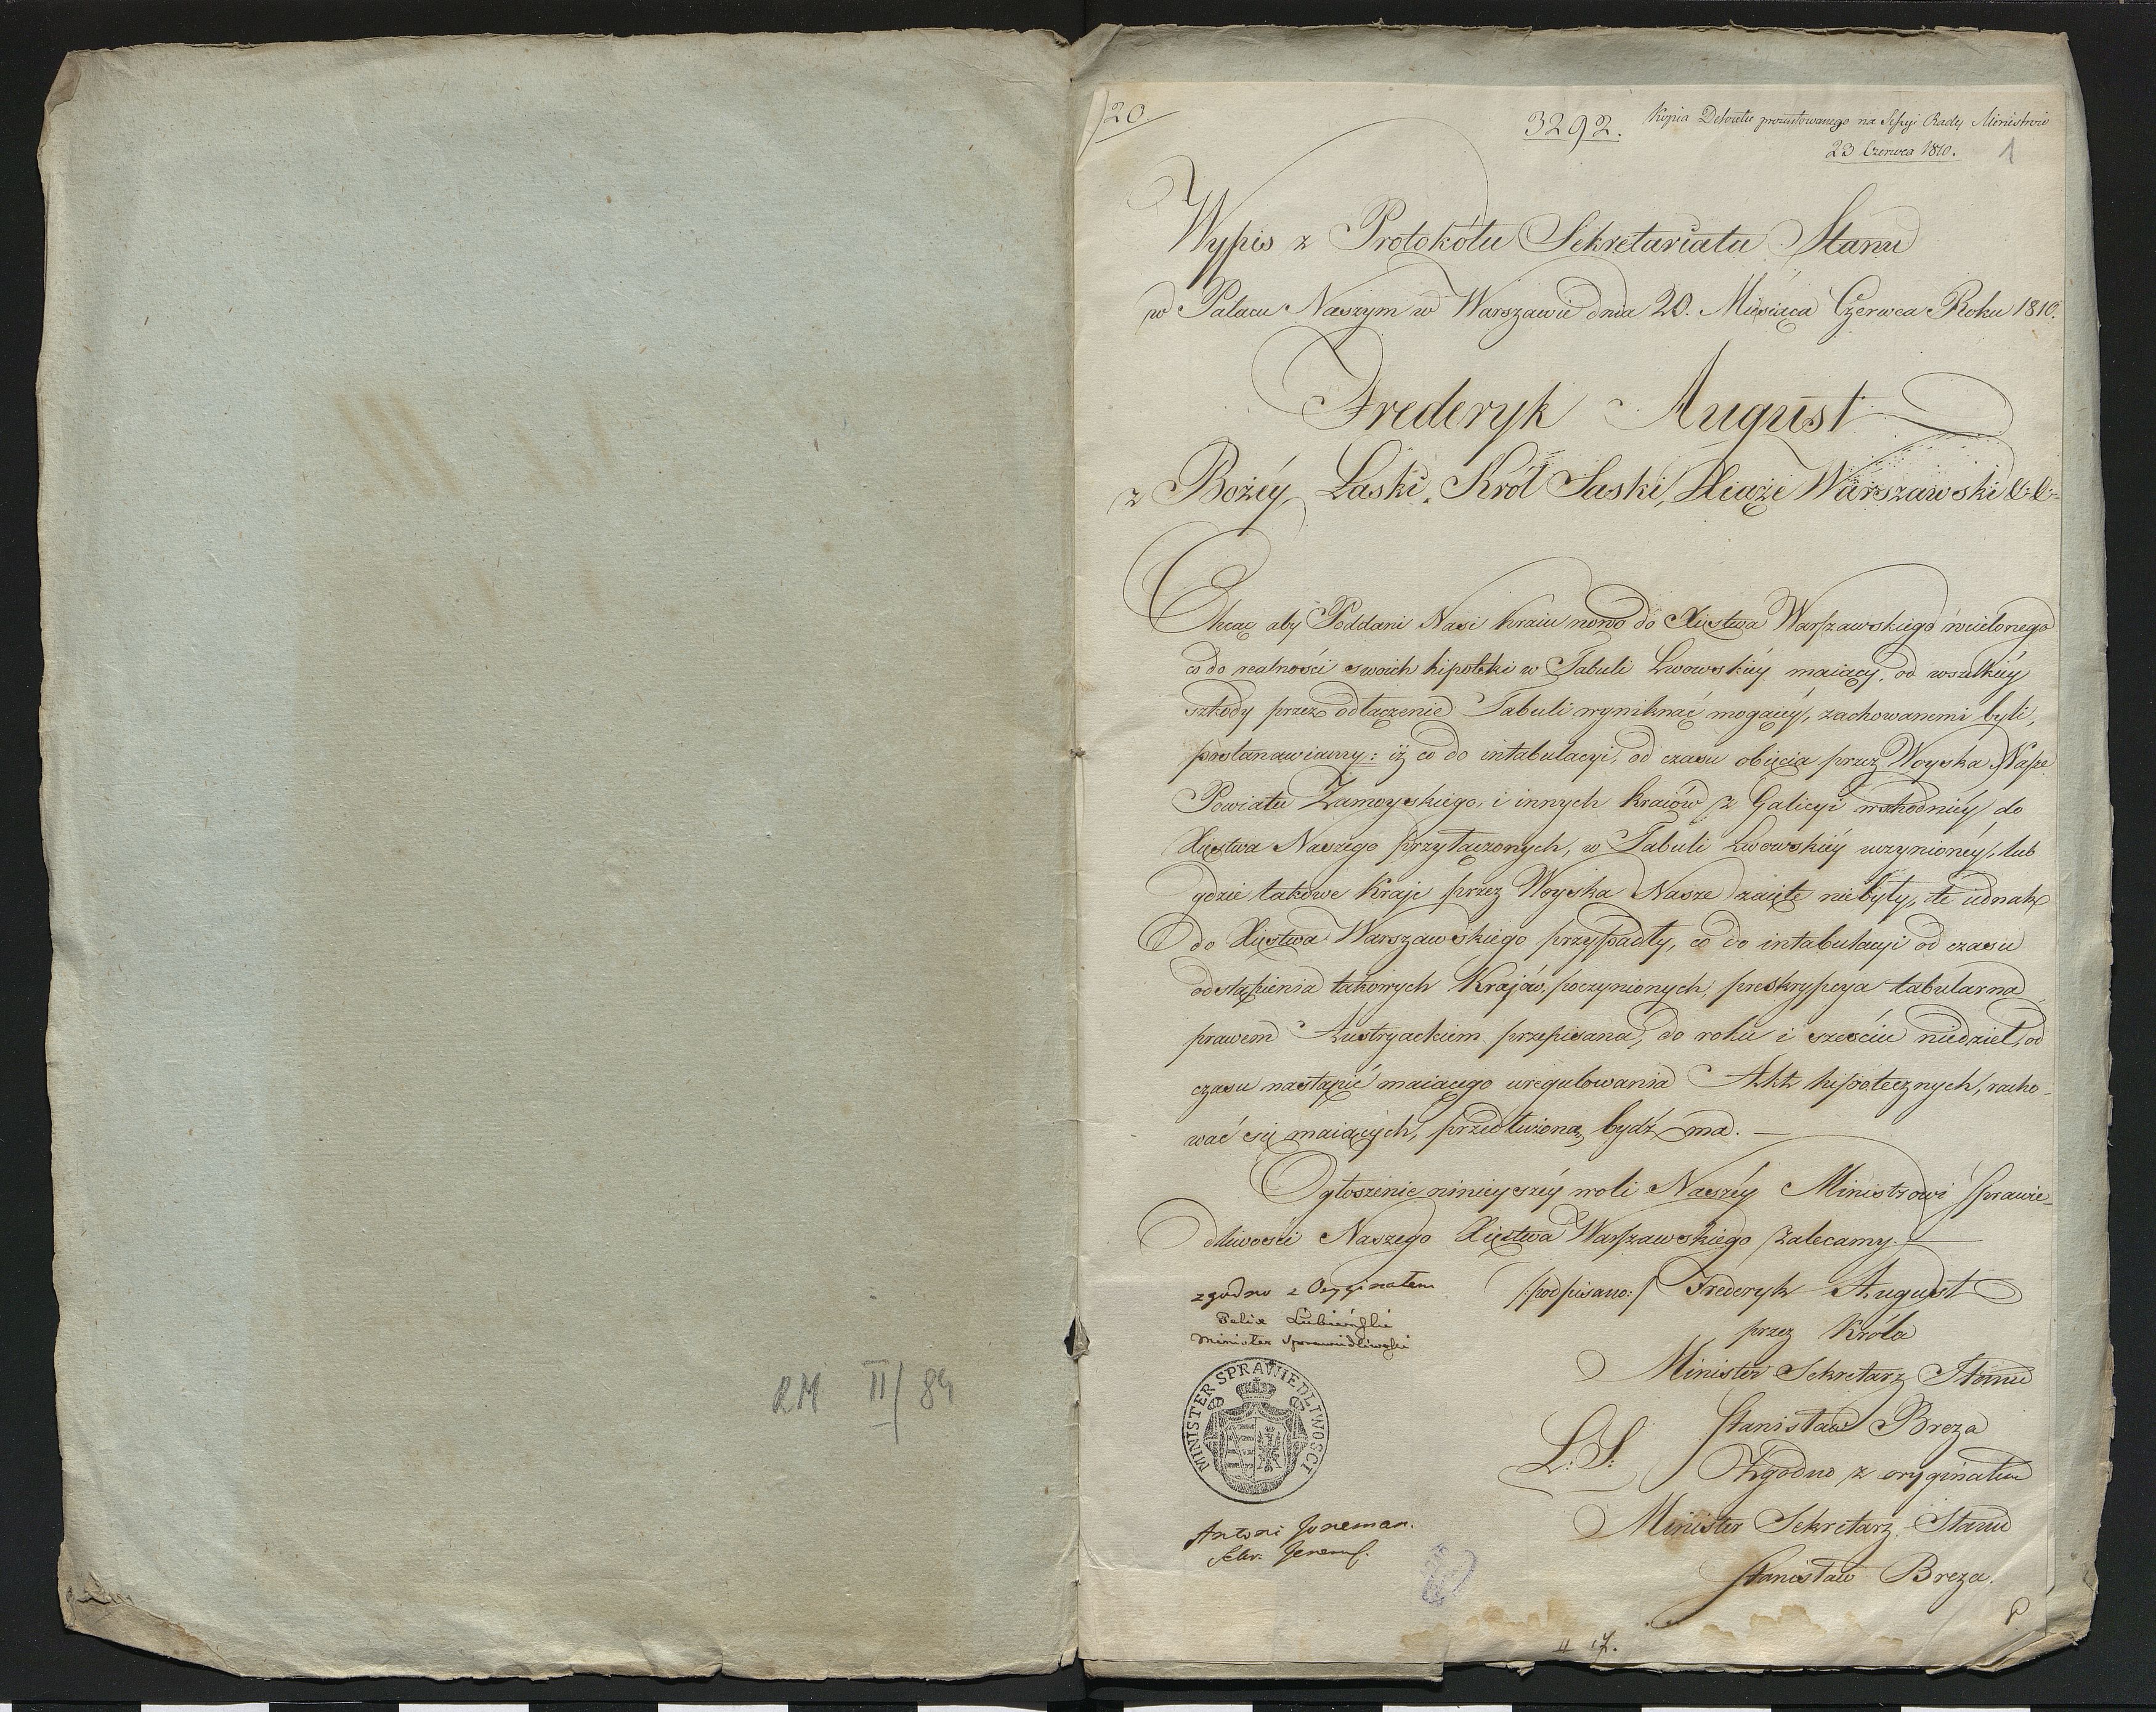 RM II/84
20.
3292.
Kopia Dekretu prezentowanego na Sessyi Rady Ministrów
23 Czerwca 1810.
1
Wypis z Protokółu Sekretariatu Stanu
w Pałacu Naszym w Warszawie dnia 20. Miesiąca Czerwca Roku 1810.
Frederyk August
z Bożéy Łaski, Król Saski, Xiąże Warszawski &. &.
Chcąc aby Poddani Nasi kraiu nowo do Xięstwa Warszawskiego wcielonego
co do realności swoich hipoteki w Tabuli Lwowskiéy maiący, od wszelkiéy
szkody przez odłączenie Tabuli wyniknąć mogącéy, zachowanemi byli,
postanawiamy: iż co do intabulacyi, od czasu obięcia przez Woyska Nasze
Powiatu Zamoyskiego, i innych kraiów z Galicyi wschodniéy do
Xięstwa Naszego przyłączonych, w Tabuli Lwowskiéy uczynionéy, lub
gdzie takowe Kraje przez Woyska Nasze zaięte niebyły, te iednak
do Xięstwa Warszawskiego przypadły, co do intabulacyi od czasu
odstąpienia takowych Krajów, poczynionych, preskrypcya tabularna
prawem Austryackiem przepisana, do roku i sześciu niedziel, od
czasu nastąpić maiącego uregulowania Akt hipotecznych, racho-
wać się maiących, przedłużoną bydź ma.
Ogłoszenie ninieyszéy woli Naszéy Ministrowi Sprawie-
dliwości Naszego Xięstwa Warszawskiego zalecamy.
zgodno z Oryginałem
Felix Lubieński
Minister Sprawiedliwości
MINISTER SPRAWIEDLIWOSCI
Antoni Joneman.
Sekr: Jeneral.
/:podpisano:/ Frederyk August
przez Króla
Minister Sekretarz Stanu
Stanisław Breza
L: S:
Zgodno z oryginałem
Minister Sekretarz Stanu
Stanisław Breza.